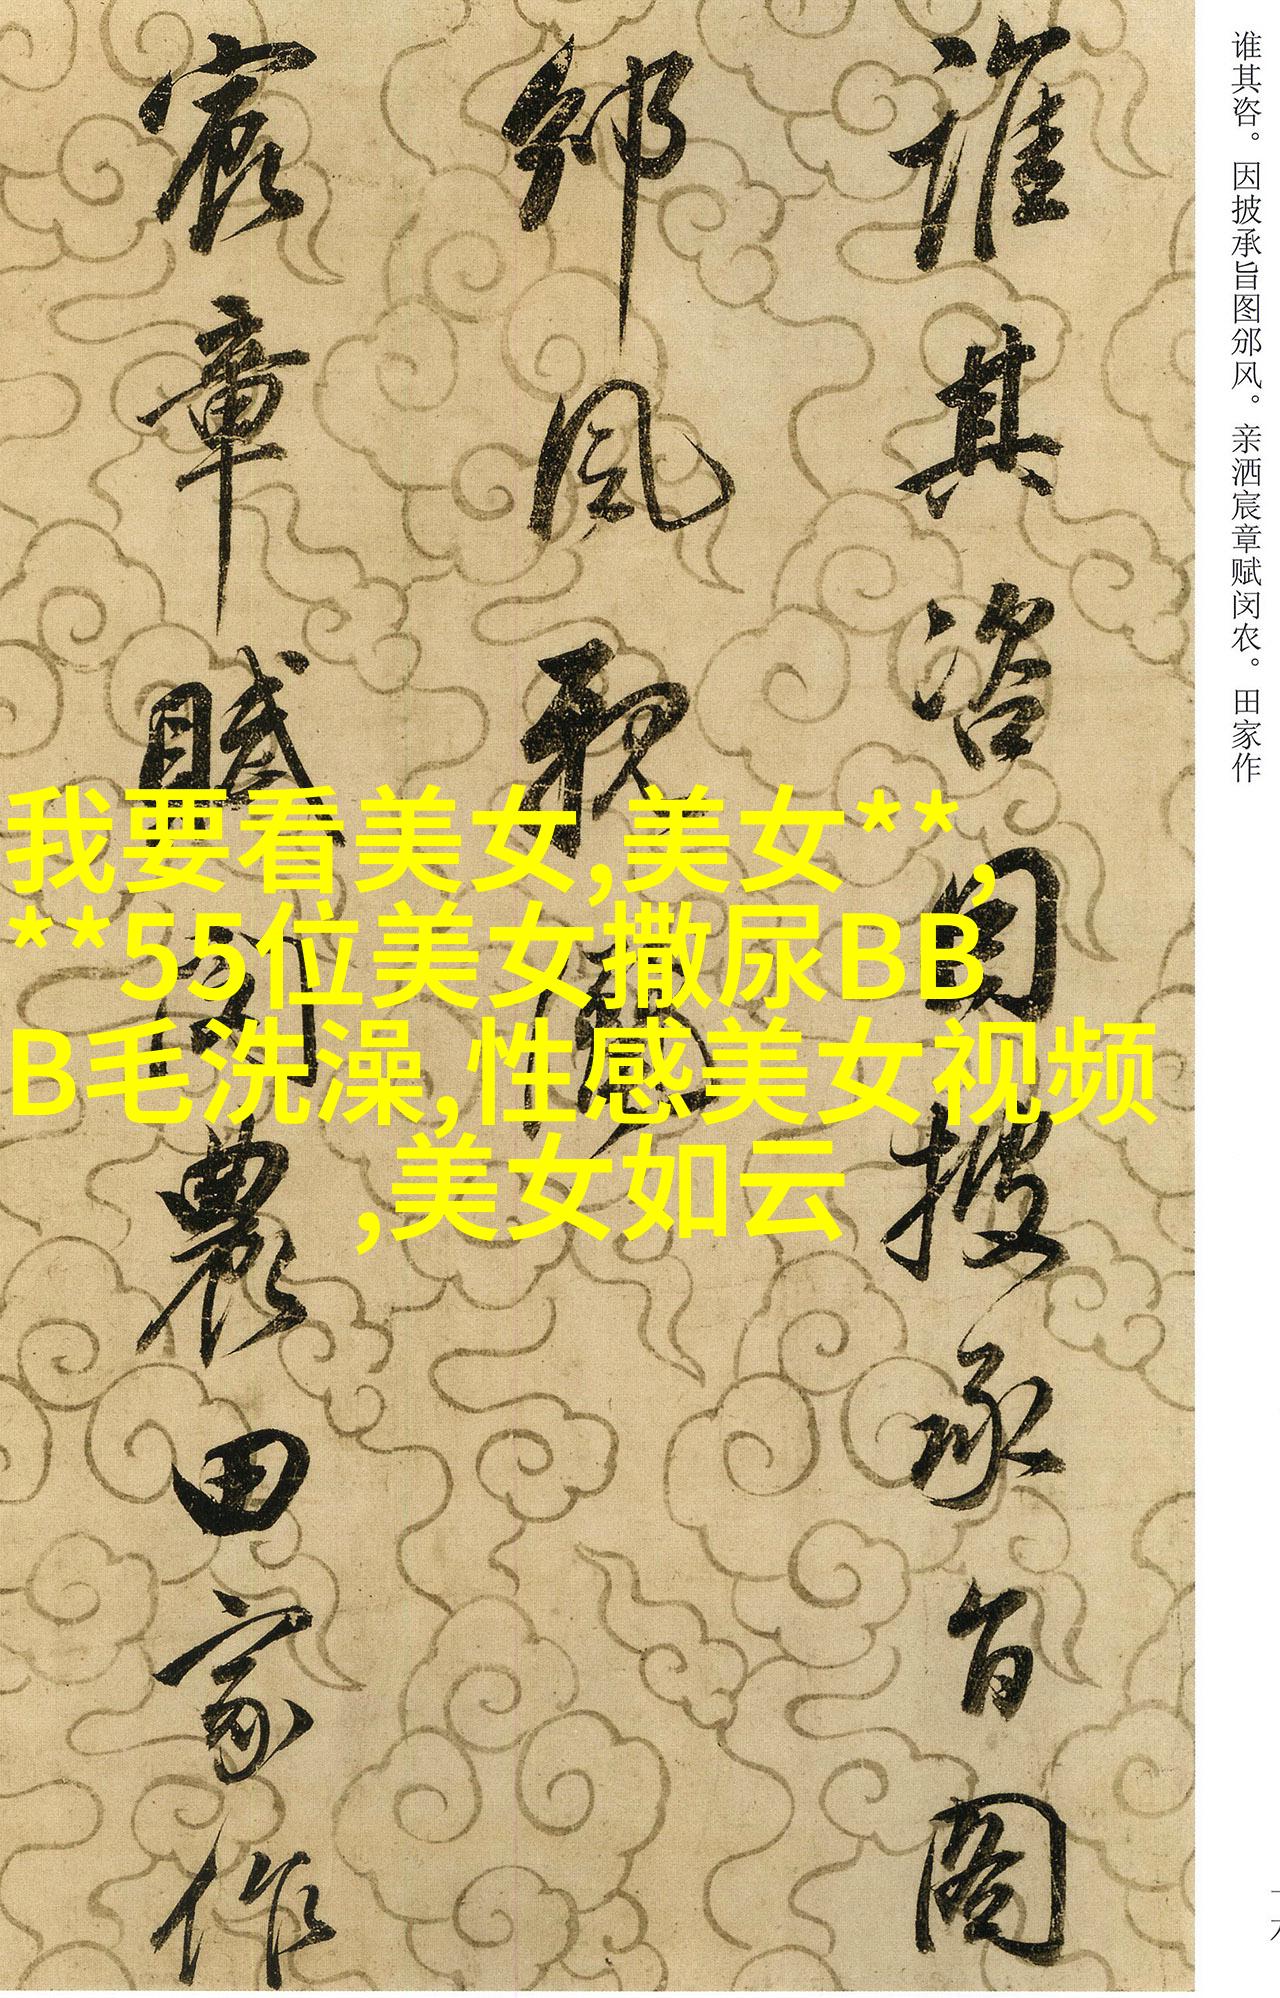 谁其咨。因披承旨图邠风。亲洒宸章赋闵农。田家作
誰其咨因披承旨圖
邠風親灑
宸章賦閔農田家作
我要看美女,美女**,
**55位美女撒尿BB
B毛洗澡,性感美女视频
,美女如云